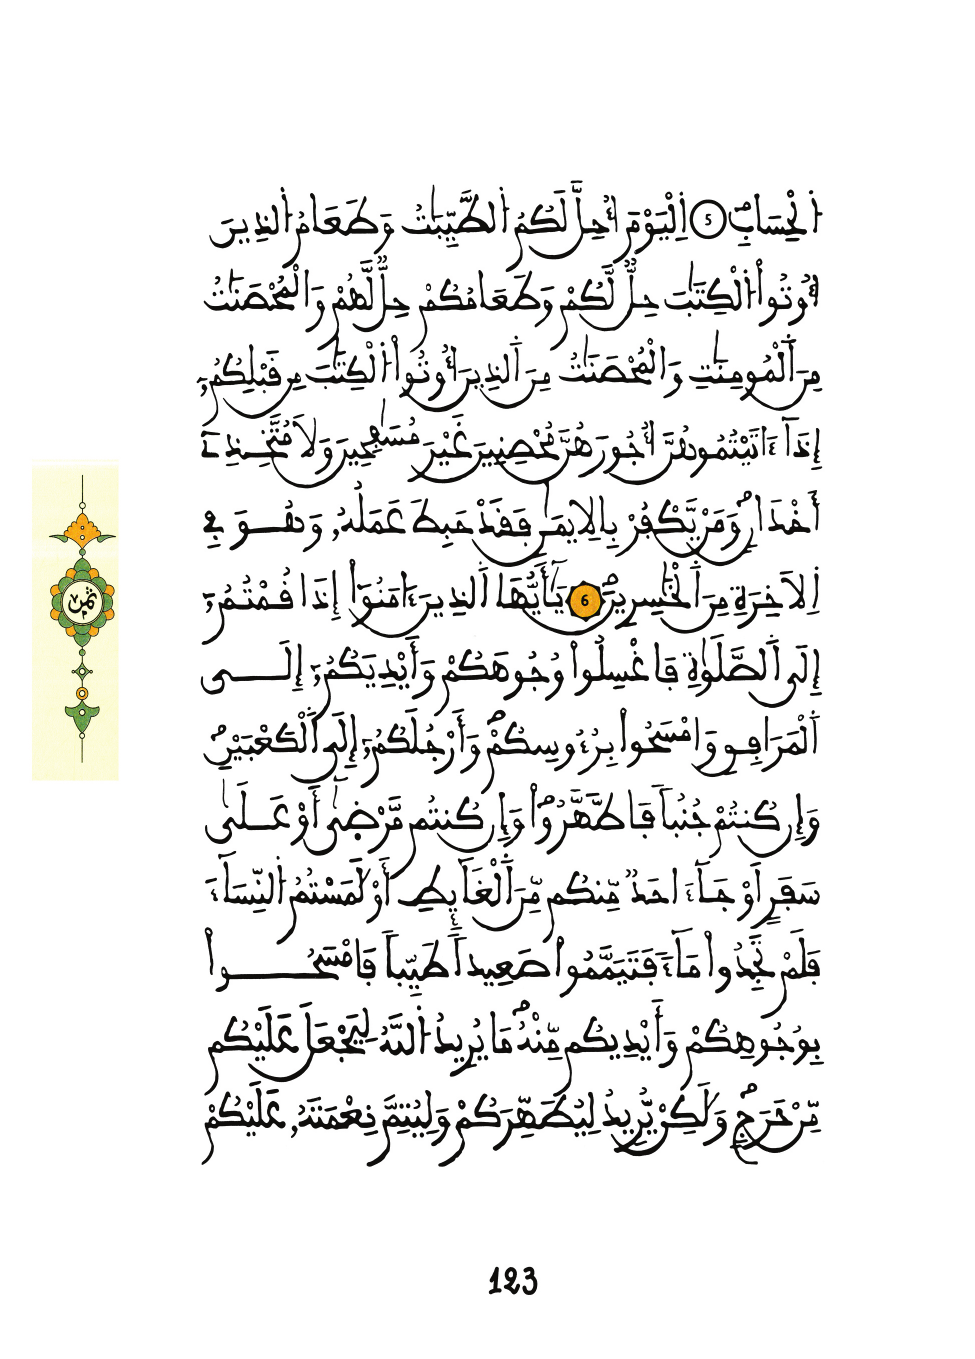 اُ۬لْحِسَابِۖ 5 اَ۬لْيَوْمَ أُحِلَّ لَكُمُ اُ۬لطَّيِّبَٰتُ وَطَعَامُ اُ۬لذِينَ
أُوتُواْ اُ۬لْكِتَٰبَ حِلّٞ لَّكُمْ وَطَعَامُكُمْ حِلّٞ لَّهُمْ وَالْمُحْصَنَٰتُ
مِنَ اَ۬لْمُومِنَٰتِ وَالْمُحْصَنَٰتُ مِنَ اَ۬لذِينَ أُوتُواْ اُ۬لْكِتَٰبَ مِن قَبْلِكُمُۥٓ
إِذَآ ءَاتَيْتُمُوهُنَّ أُجُورَهُنَّ مُحْصِنِينَ غَيْرَ مُسَٰفِحِينَ وَلَا مُتَّخِذِےٓ
أَخْدَانٖۖ وَمَنْ يَّكْفُرْ بِالِايمَٰنِ فَقَدْ حَبِطَ عَمَلُهُۥ وَهُوَ فِے
اِ۬لَاخِرَةِ مِنَ اَ۬لْخَٰسِرِينَۖ 6 يَٰٓأَيُّهَا اَ۬لذِينَ ءَامَنُوٓاْ إِذَا قُمْتُمُۥٓ
إِلَى اَ۬لصَّلَوٰةِ فَاغْسِلُواْ وُجُوهَكُمْ وَأَيْدِيَكُمُۥٓ إِلَى
اَ۬لْمَرَافِقِ وَامْسَحُواْ بِرُءُوسِكُمْۖ وَأَرْجُلَكُمُۥٓ إِلَى اَ۬لْكَعْبَيْنِۖ
وَإِن كُنتُمْ جُنُباٗ فَاطَّهَّرُواْۖ وَإِن كُنتُم مَّرْض۪يٰٓ أَوْ عَلَىٰ
سَفَرٍ اَوْ جَآءَ احَدٞ مِّنكُم مِّنَ اَ۬لْغَآئِطِ أَوْ لَٰمَسْتُمُ اُ۬لنِّسَآءَ
فَلَمْ تَجِدُواْ مَآءٗ فَتَيَمَّمُواْ صَعِيداٗ طَيِّباٗ فَامْسَحُواْ
بِوُجُوهِكُمْ وَأَيْدِيكُم مِّنْهُۖ مَا يُرِيدُ اُ۬للَّهُ لِيَجْعَلَ عَلَيْكُم
مِّنْ حَرَجٖۖ وَلَٰكِنْ يُّرِيدُ لِيُطَهِّرَكُمْ وَلِيُتِمَّ نِعْمَتَهُۥ عَلَيْكُمْ
ثمن
123